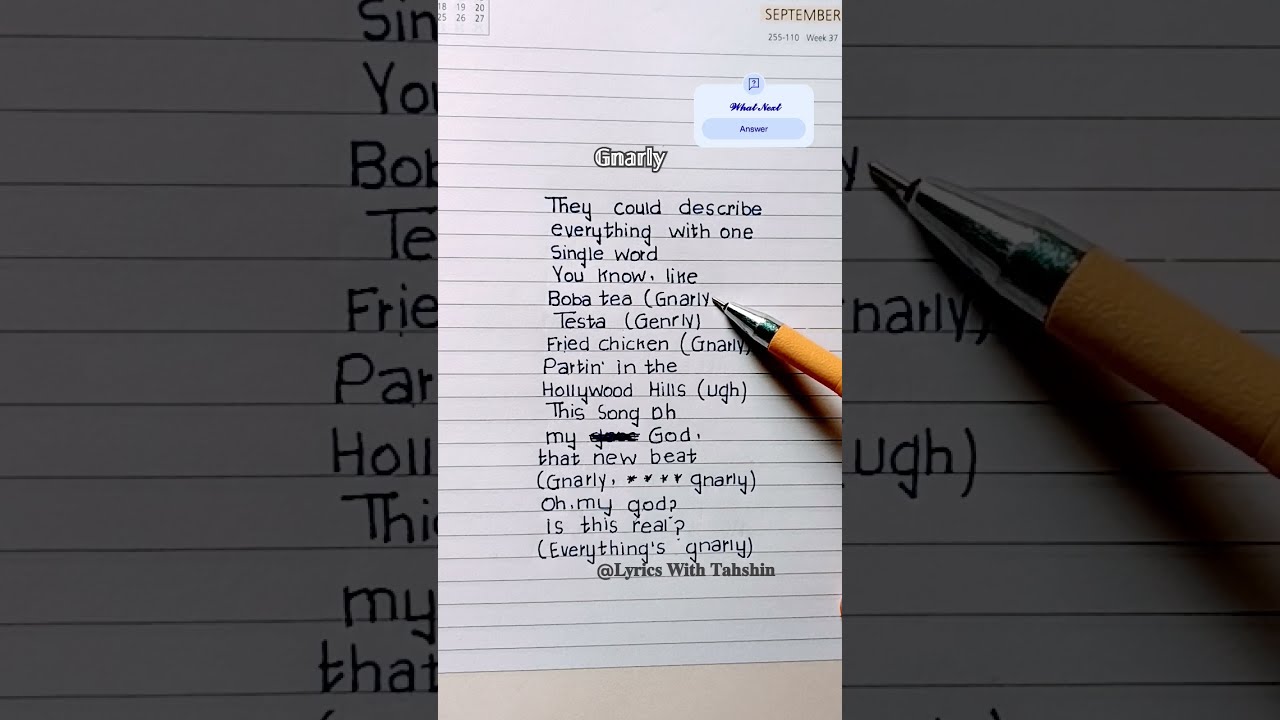 18 19 20
25 26 27
SEPTEMBER
255-110 Week 37
What Next
Answer
Gnarly
They could describe
everything with one
Single word
You know, like
Boba tea (Gnarly
Testa (Genrly)
Fried chicken (Gnarly)
Partin' in the
Hollywood Hills (ugh)
This Song Oh
my God,
that new beat
(Gnarly, **** gnarly)
Oh, my god?
is this real?
(Everything's gnarly)
@Lyrics With Tahshin
Sin
You
Bob
Te
Frie
Par
Holl
Thi
my
that
y
narly)
ugh)